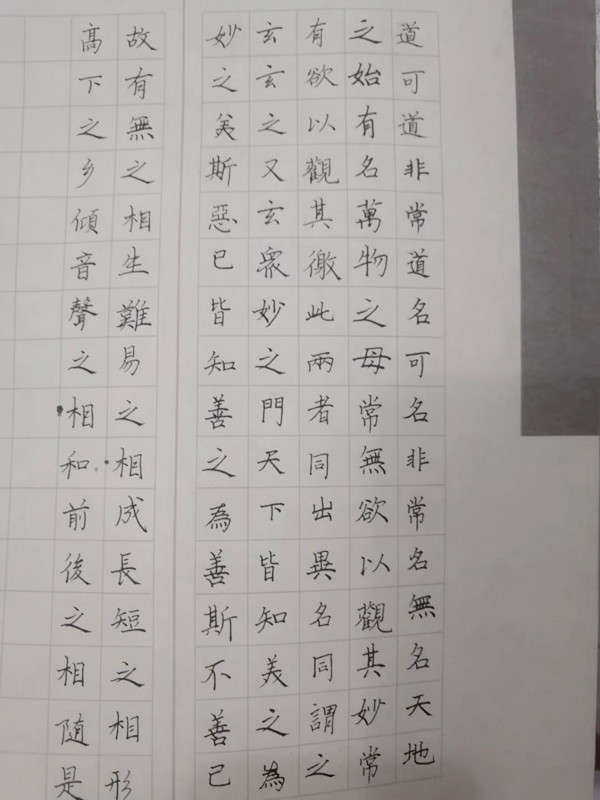 道可道非常道名可名非常名無名天地
之始有名萬物之母常無欲以觀其妙常
有欲以觀其徼此兩者同出異名同謂之
玄玄之又玄眾妙之門天下皆知美之為
妙之美斯惡已皆知善之為善斯不善已
故有無之相生難易之相成長短之相形
高下之乡傾音聲之相和前後之相随是